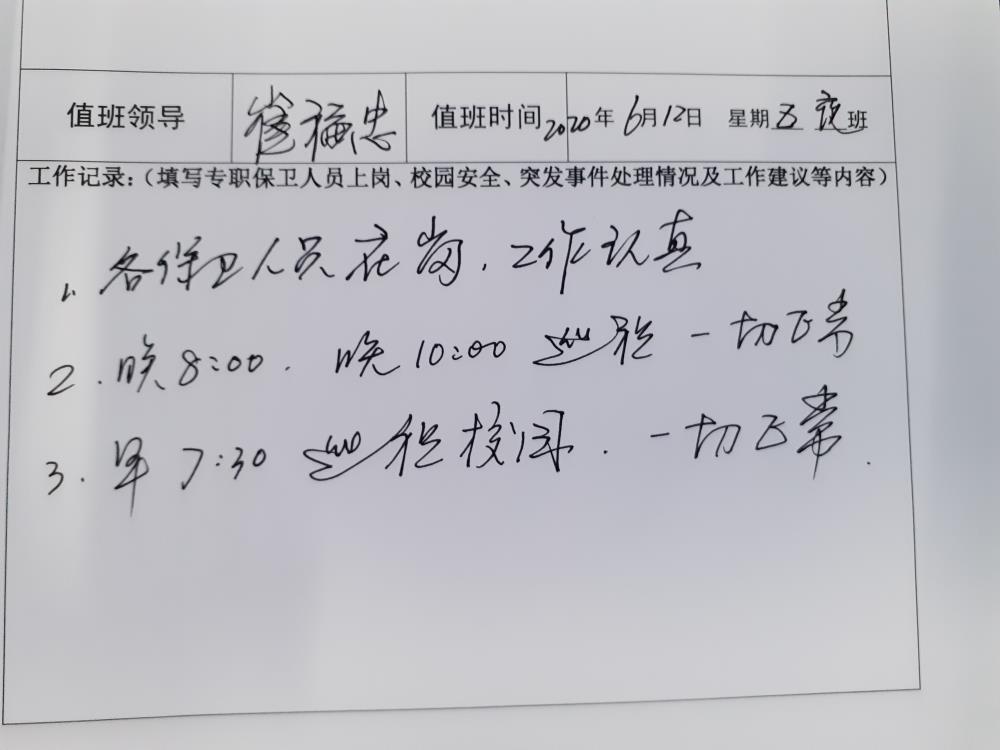 值班领导 崔福忠 值班时间 2020年 6月12日 星期五 夜班
工作记录：（填写专职保卫人员上岗、校园安全、突发事件处理情况及工作建议等内容）
1. 各保卫人员在岗，工作认真
2. 晚8:00. 晚10:00 巡视 一切正常
3. 早7:30 巡视校园. 一切正常.